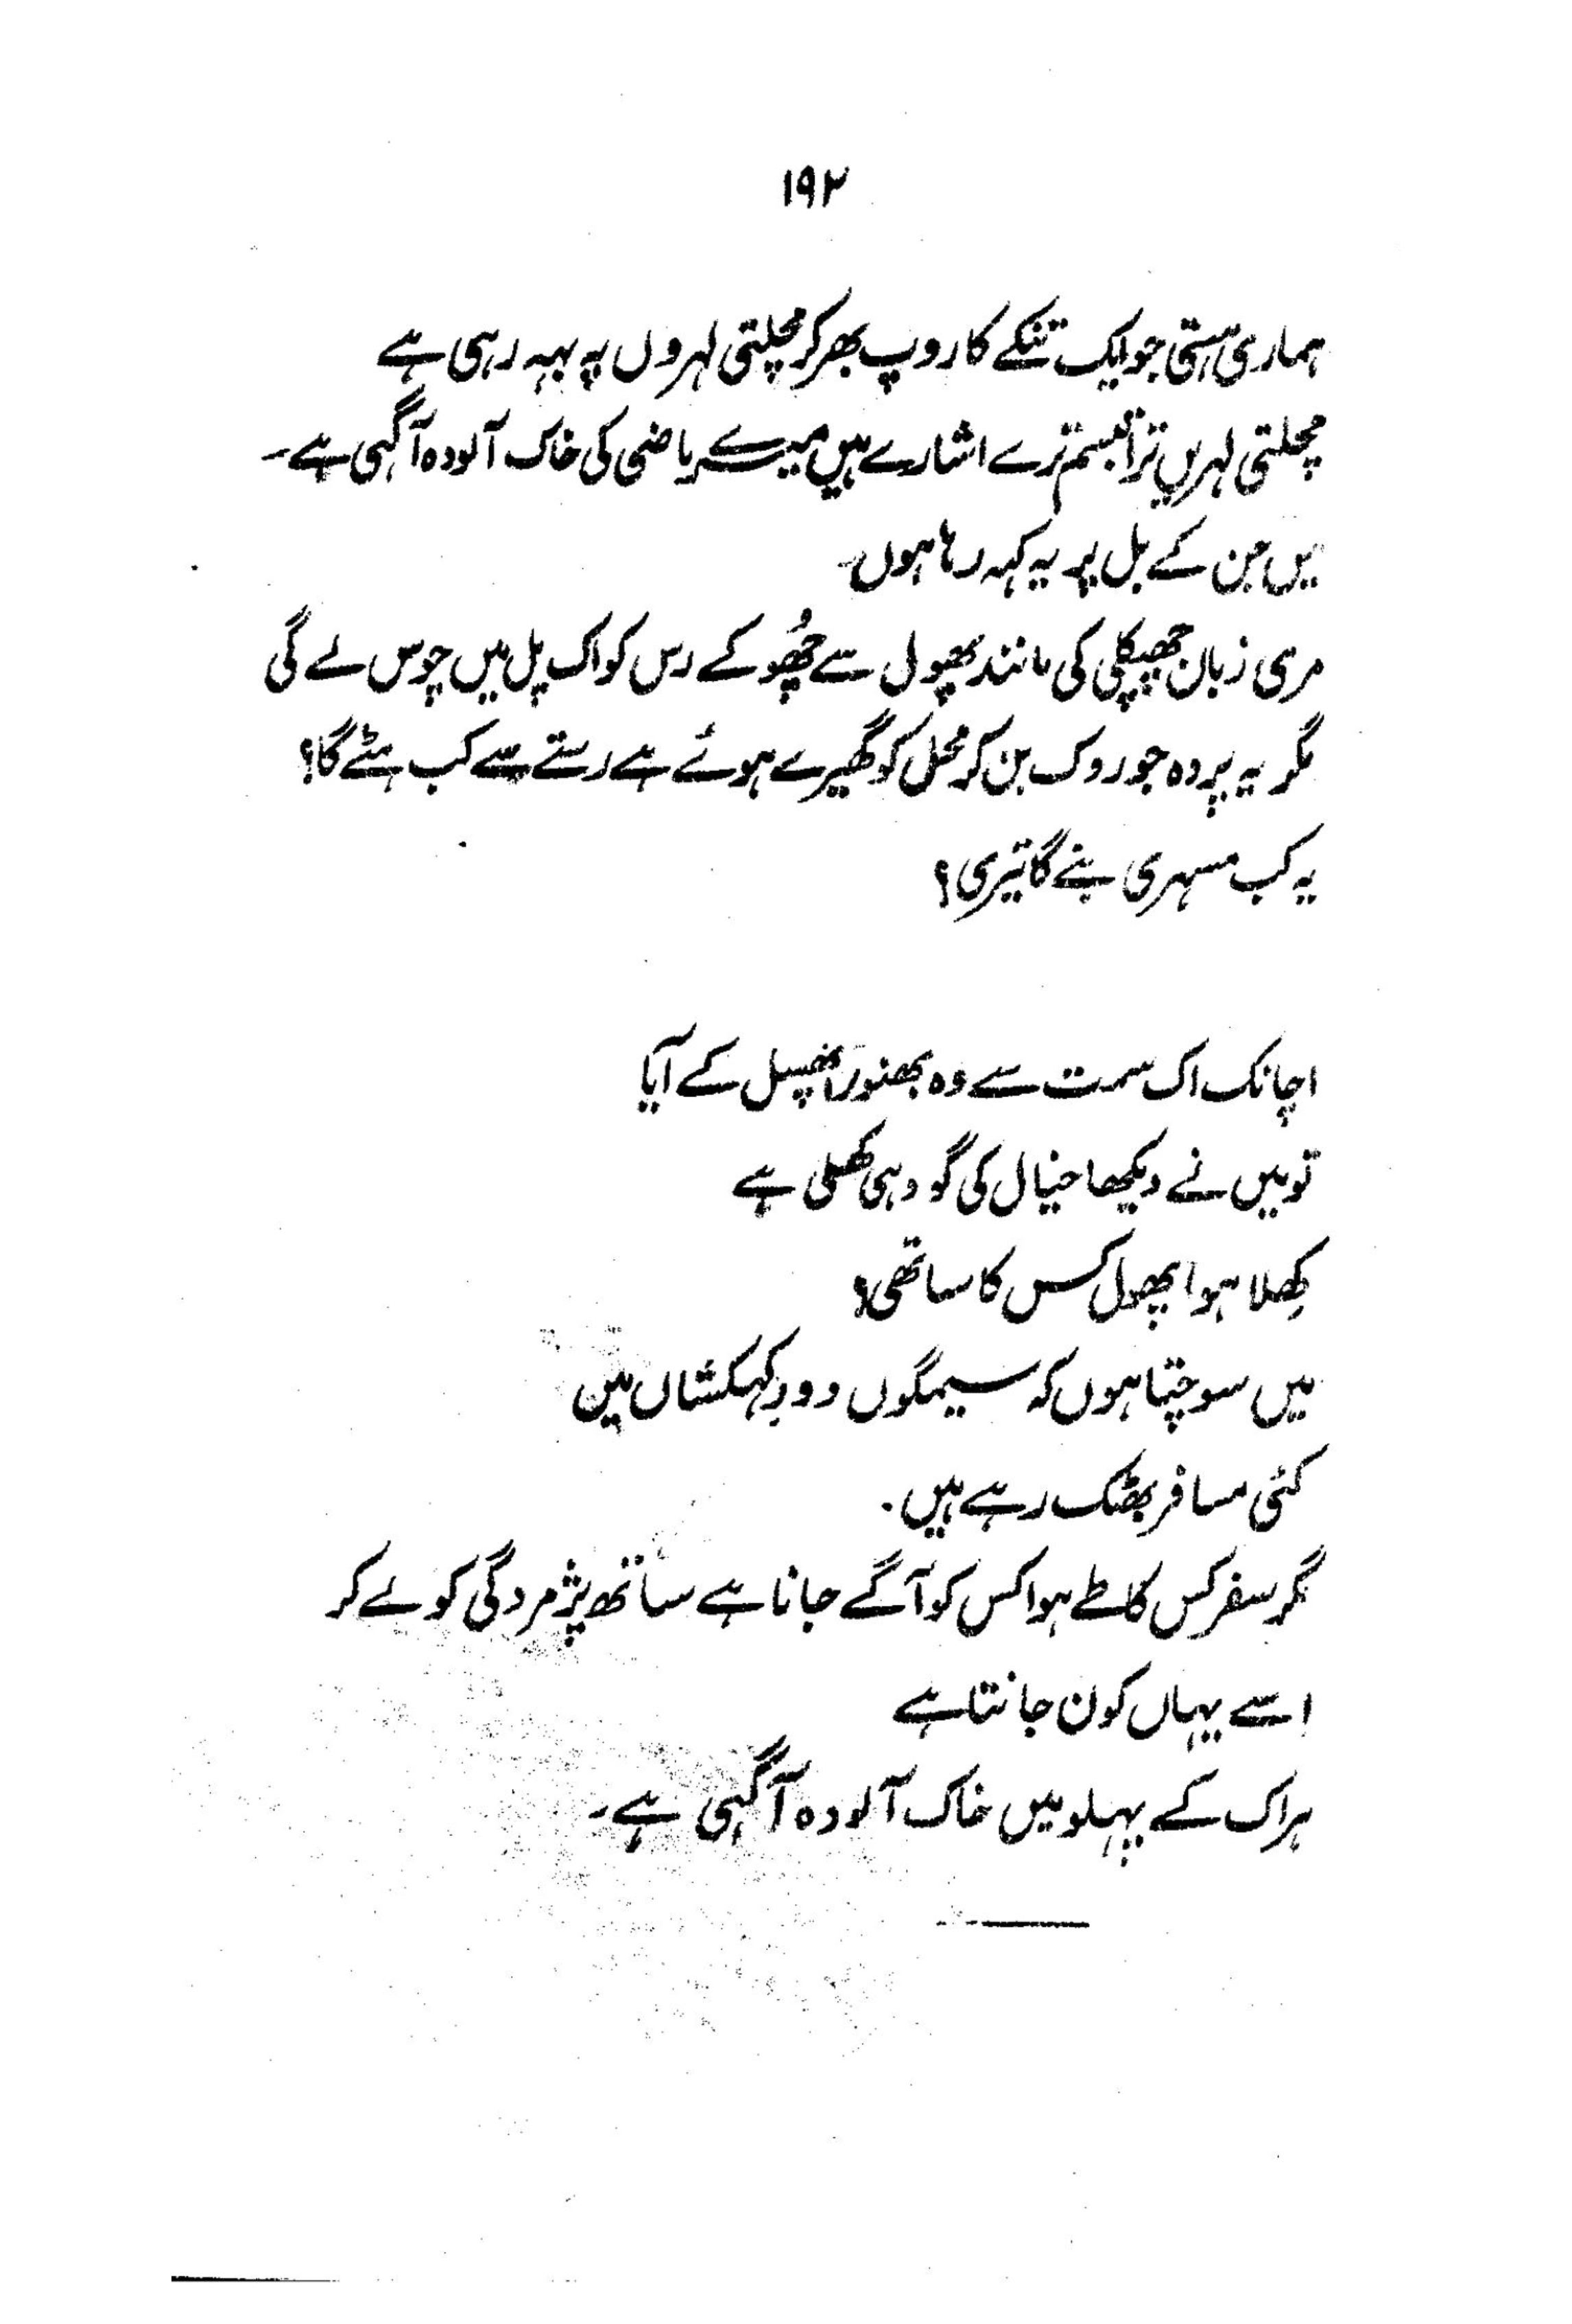 ۱۹۲
ہماری ہستی جو ایک تنکے کا روپ بھر کر مچلتی لہروں پہ بہہ رہی ہے
مچلتی لہریں ترا تبسم ترے اشارے ہیں میرے ماضی کی خاک آلودہ آگہی ہے۔
میں جن کے بل پر یہ کہہ رہا ہوں۔
مری زباں چھپکلی کی مانند پھول سے چھُو کے رس کو اک پل میں چوس لے گی
مگر یہ پردہ جو روک بن کر محل کو گھیرے ہوئے ہے رستے سے کب ہٹے گا؟
یہ کب مسہری بنے گا تیری؟
اچانک اک سمت سے وہ بھنورا پھسل کے آیا
تو میں نے دیکھا خیال کی گود ہی کھلی ہے
کھِلا ہوا پھول کس کا ساتھی؟
میں سوچتا ہوں کہ سیمگوں دودِ کہکشاں میں
کئی مسافر بھٹک رہے ہیں۔
مگر سفر کس کا طے ہوا کس کو آگے جانا ہے ساتھ پژمردگی کو لے کر
اسے یہاں کون جانتا ہے
ہر اک کے پہلو میں خاک آلودہ آگہی ہے۔